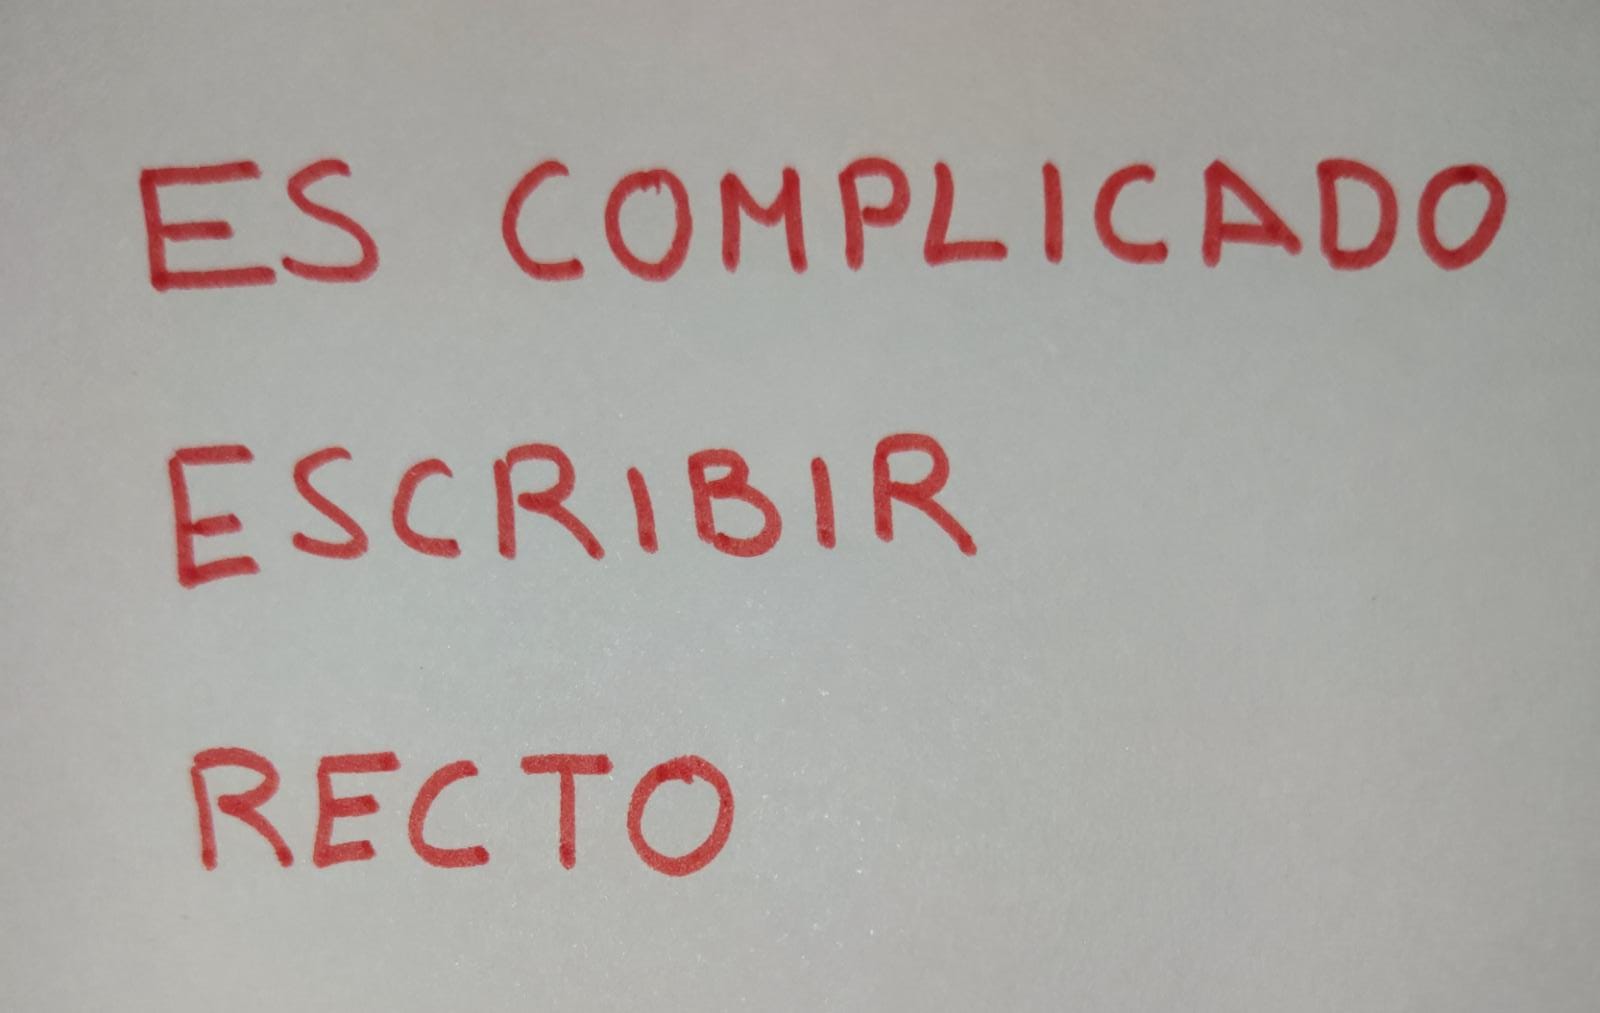 ES COMPLICADO
ESCRIBIR
RECTO